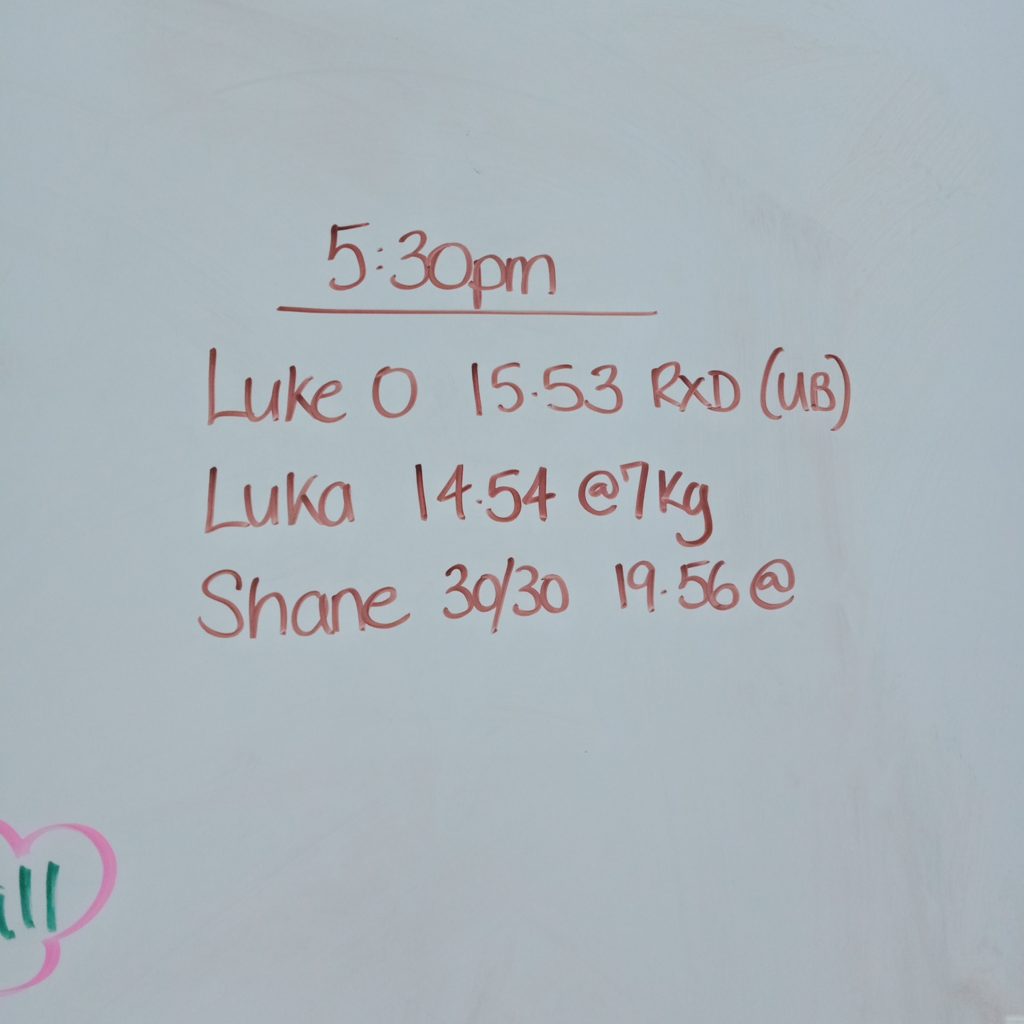 5:30pm
Luke O 15.53 RXD (UB)
Luka 14.54 @7Kg
Shane 30/30 19.56 @